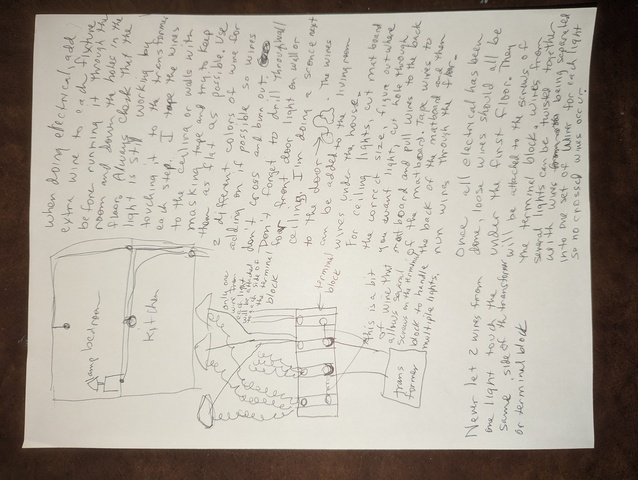 When doing electrical, add
extra wire to each fixture
before running it through the
room and down the holes in the
floors. Always check that the
light is still working by
touching it to the transformer
each step. I tape the wires
to the ceiling or walls with
masking tape and try to keep
them as flat as possible. Use
2 different colors of wire for
adding on if possible so wires
don't cross and burn out.
Don't forget to drill through wall
for front door light on wall or
ceiling. I'm doing a sconce next
to the door. The wires
can be added to the living room
wires under the house.
For ceiling lights, cut mat board
the correct size, figure out where
you want light, cut hole through
mat board and pull wires to the back
of the matboard. Tape wires to
the back of the matboard and then
run wires through the floor.
Once all electrical has been
done, loose wires should all be
under the first floor. They
will be attached to the screws of
the terminal block. Wires from
several lights can be twisted together
with wire being separated
into one set of wire for each light
so no crossed wires occur.
Lamp bedroom
Kitchen
only one
wire from
a light
each side of
the terminal
block
terminal
block
this is a bit
of wire that
allows several
screws on the terminal
block to handle
multiple lights,
trans
former
Never let 2 wires from
one light touch the
same side of the transformer
or terminal block